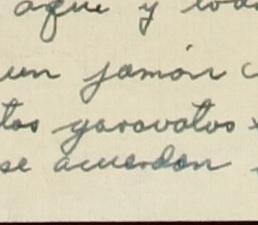 aqui y toda
un jamón c
tos garavatos
se acuerdan